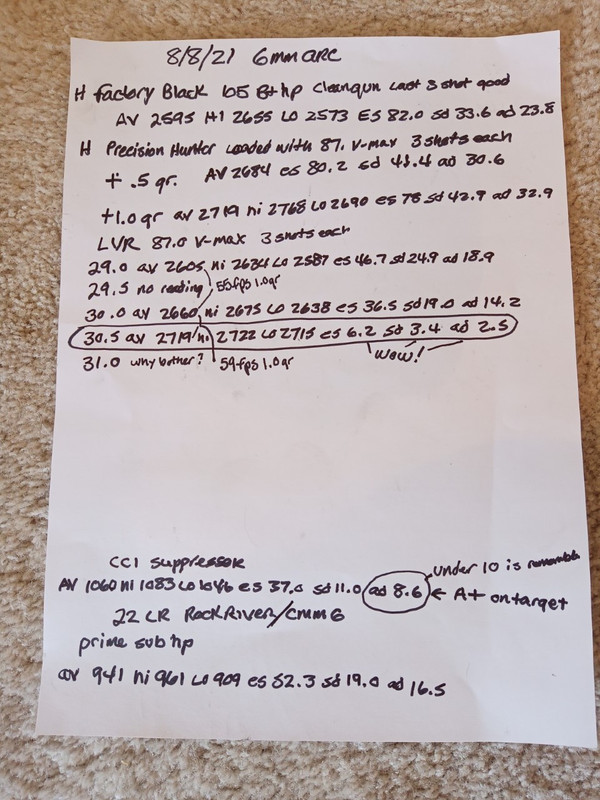 8/8/21 6mm ARC
H Factory Black 105 Bthp Cleangun Last 3 shot good
AV 2595 HI 2655 LO 2573 ES 82.0 sd 33.6 ad 23.8
H Precision Hunter Loaded with 87. V-max 3 shots each
+ .5 gr. AV 2684 es 80.2 sd 41.4 ad 30.6
+1.0 gr av 2719 hi 2768 Lo 2690 es 78 sd 42.9 ad 32.9
LVR 87.0 V-max 3 shots each
29.0 av 2605 hi 2634 Lo 2587 es 46.7 sd 24.9 ad 18.9
29.5 no reading 55fps 1.0gr
30.0 av 2660 hi 2675 Lo 2638 es 36.5 sd 19.0 ad 14.2
30.5 av 2719 hi 2722 Lo 2715 es 6.2 sd 3.4 ad 2.5
31.0 why bother? 59fps 1.0gr wow!
CCI suppressor
under 10 is
AV 1060 hi 1083 Lo 1046 es 37.0 sd 11.0 ad 8.6 ← A+ on target
22 LR Rock River/CMMG
prime sub hp
av 941 hi 961 Lo 909 es 52.3 sd 19.0 ad 16.5